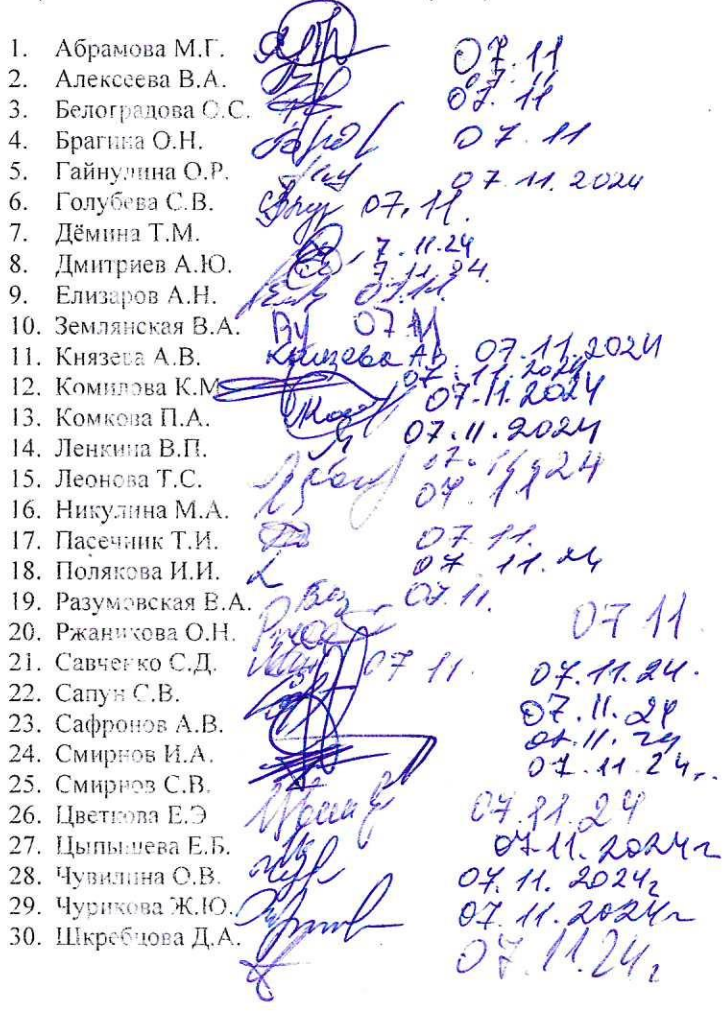 1. Абрамова М.Г. 07.11
2. Алексеева В.А. 07.11
3. Белоградова О.С. 07.11
4. Брагина О.Н. 07.11
5. Гайнулина О.Р. 07.11.2024
6. Голубева С.В. 07.11.
7. Дёмина Т.М. 7.11.24
8. Дмитриев А.Ю. 7.11.24.
9. Елизаров А.Н. 07.11.
10. Землянская В.А. 07.11
11. Князева А.В. Князева АВ 07.11.2024
12. Комилова К.М. 07.11.2024
13. Комкова П.А. 07.11.2024
14. Ленкина В.П. 07.11.2024
15. Леонова Т.С. 07.11.24
16. Никулина М.А. 07.11
17. Пасечник Т.И. 07.11.
18. Полякова И.И. 07.11.24
19. Разумовская В.А. 07.11.
20. Ржаникова О.Н. 07 11
21. Савченко С.Д. 07.11. 07.11.24.
22. Сапун С.В. 07.11.24
23. Сафронов А.В. 07.11.24
24. Смирнов И.А. 07.11.24
25. Смирнов С.В.
26. Цветкова Е.Э 07.11.24
27. Цыпышева Е.Б. 07.11.2024г
28. Чувилина О.В. 07.11.2024г
29. Чурикова Ж.Ю. 07.11.2024г
30. Шкребцова Д.А. 07.11.24г